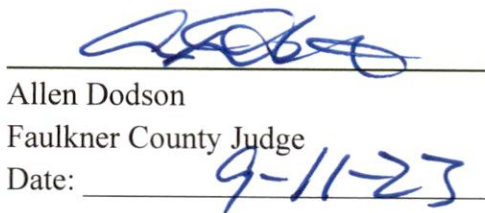 Allen Dodson
Faulkner County Judge
Date: 9-11-23